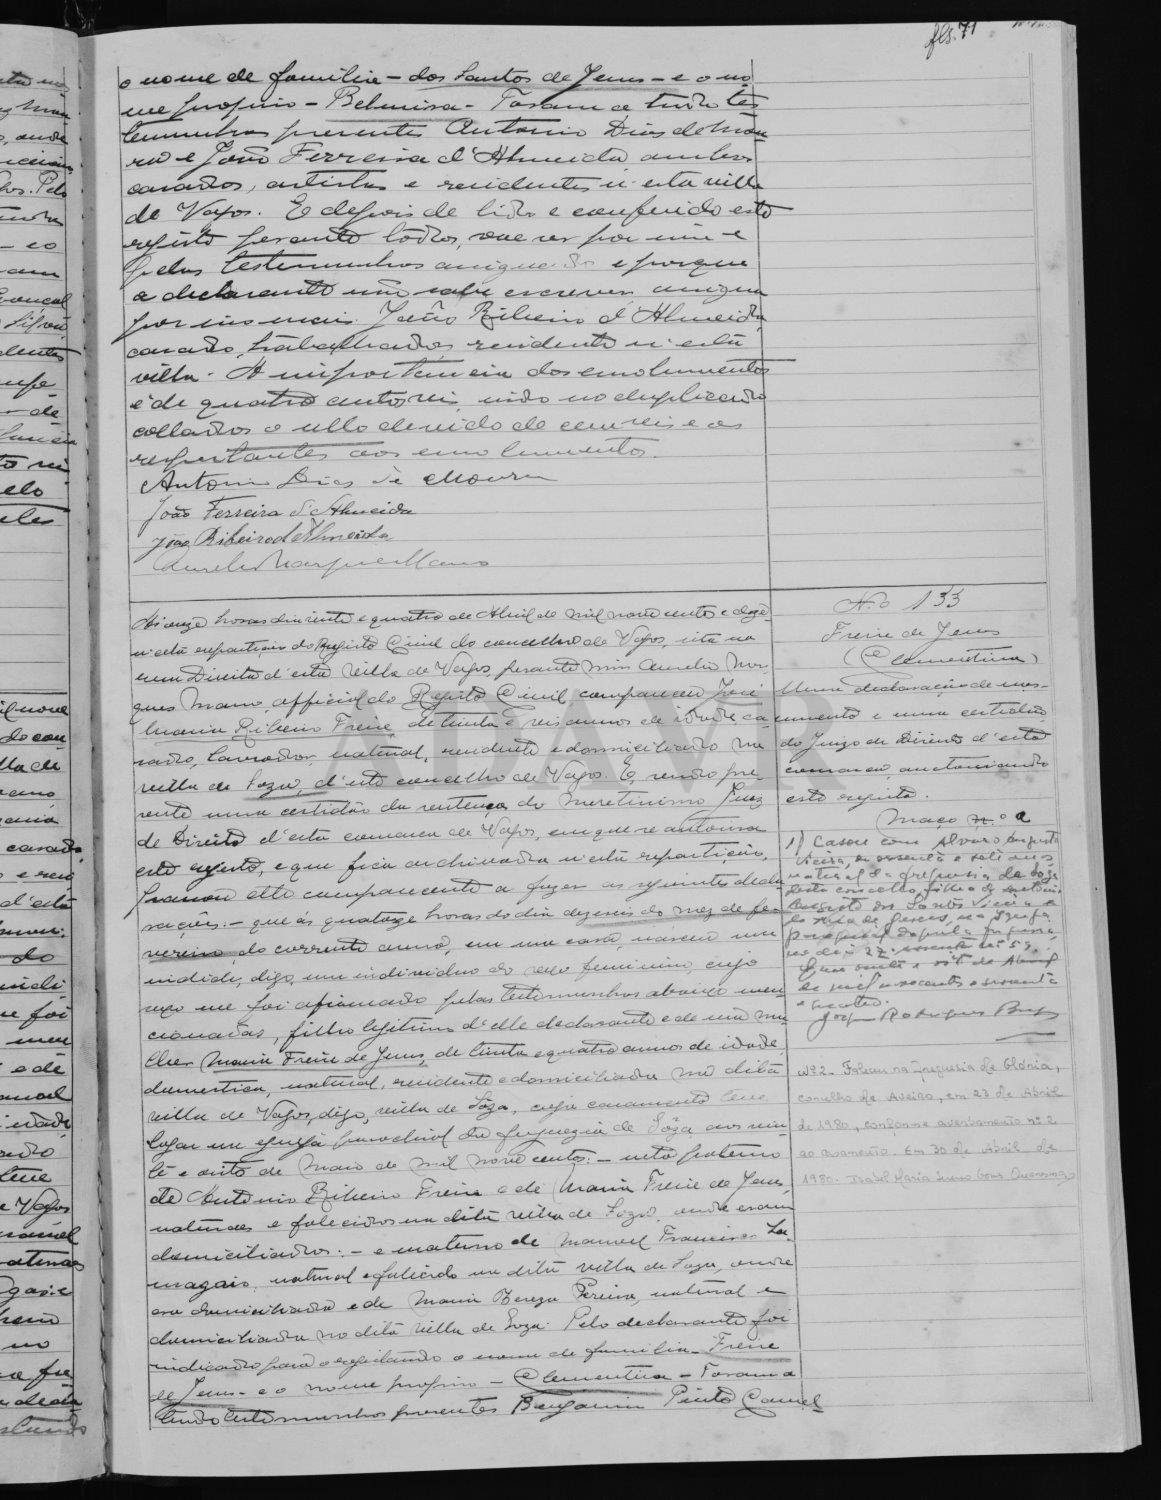 fls. 71
o nome de familia – dos Santos de Jesus – e o no-
me proprio – Belmira – Foram a tudo tes
temunhas presentes Antonio Dias de Mou
ra e João Ferreira d'Almeida ambos
casados, artistas e residentes n'esta villa
de Vagos. E depois de lido e conferido este
registo perante todos, vae ser por mim e
pelas testemunhas assignado e porque
a declarante não sabe escrever assigna
por ella João Ribeiro d'Almeida,
casado, trabalhador, residente n'esta
villa. A importancia dos emolumentos
é de quatro centos reis, indo no duplicado
collados o sello devido de cem reis e os
respeitantes aos emolumentos.
Antonio Dias de Moura
João Ferreira d'Almeida
João Ribeiro d'Almeida
Aurelio Marques Mano
N.o 133
Freire de Jesus
(Clementina)
Uma declaração de nas-
cimento e uma certidão
do Juizo de Direito d'esta
comarca, auctorisando
este registo.
Maço n.o 2
1) Casou com Alvaro Augusto
Vieira, de sessenta e seis anos
natural da freguesia de Soza
deste concelho, filho de Antonio
Augusto dos Santos Vieira e
de Rosa de Jesus, na Igreja
paroquial daquela freguesia
no dia 27.
de mil novecentos e sessenta
e quatro.
Rodrigues
Nº 2 – Faleceu na freguesia da Glória,
concelho de Aveiro, em 23 de Abril
de 1980, conforme averbamento nº 2
ao casamento. Em 30 de Abril de
1980. Isabel Maria
Ás onze horas do dia vinte e quatro de Abril de mil nove centos e doze
n'esta repartição do Registo Civil do concelho de Vagos, sita na
rua Direita d'esta Villa de Vagos, perante mim Aurelio Mar-
ques Mano official do Registo Civil, compareceu José
Maria Ribeiro Freire, de trinta e seis annos de idade, ca-
sado, lavrador, natural, residente e domiciliado na
villa de Soza, d'este concelho de Vagos. E, sendo pre-
sente uma certidão da sentença do Meretissimo Juiz
de Direito d'esta comarca de Vagos, em que se autorisa
este registo, e que fica archivada n'esta repartição,
passou elle comparecente a fazer as seguintes decla
rações: – que ás quatorze horas do dia dezeseis do mez de fe-
vereiro, do corrente anno, em sua casa, nasceu um
individo, digo, um individuo do sexo feminino, cujo
sexo me foi afirmado pelas testemunhas abaixo men-
cionadas, filho legitimo d'elle declarante e de sua mu-
lher Maria Freire de Jesus, de trinta e quatro annos de idade,
domestica, natural, residente e domiciliada na dita
villa de Vagos, digo, villa de Sôza, cujo casamento teve
logar na egreja parochial da freguezia de Sôza aos vin-
te e oito de Maio de mil nove centos: – neto paterno
de Antonio Ribeiro Freire e de Maria Freire de Jesus,
naturaes e falecidos na dita villa de Soza, onde eram
domiciliados: – e materno de Manuel Francisco La-
magaio, natural e falecido na dita villa de Soza, onde
era domiciliado e de Maria Thereza Pereira, natural e
domiciliada na dita villa de Soza. Pelo declarante foi
indicado para o registando o nome de familia – Freire
de Jesus – e o nome proprio – Clementina – Foram a
tudo testemunhas presentes Benjamin Pinto Camel-